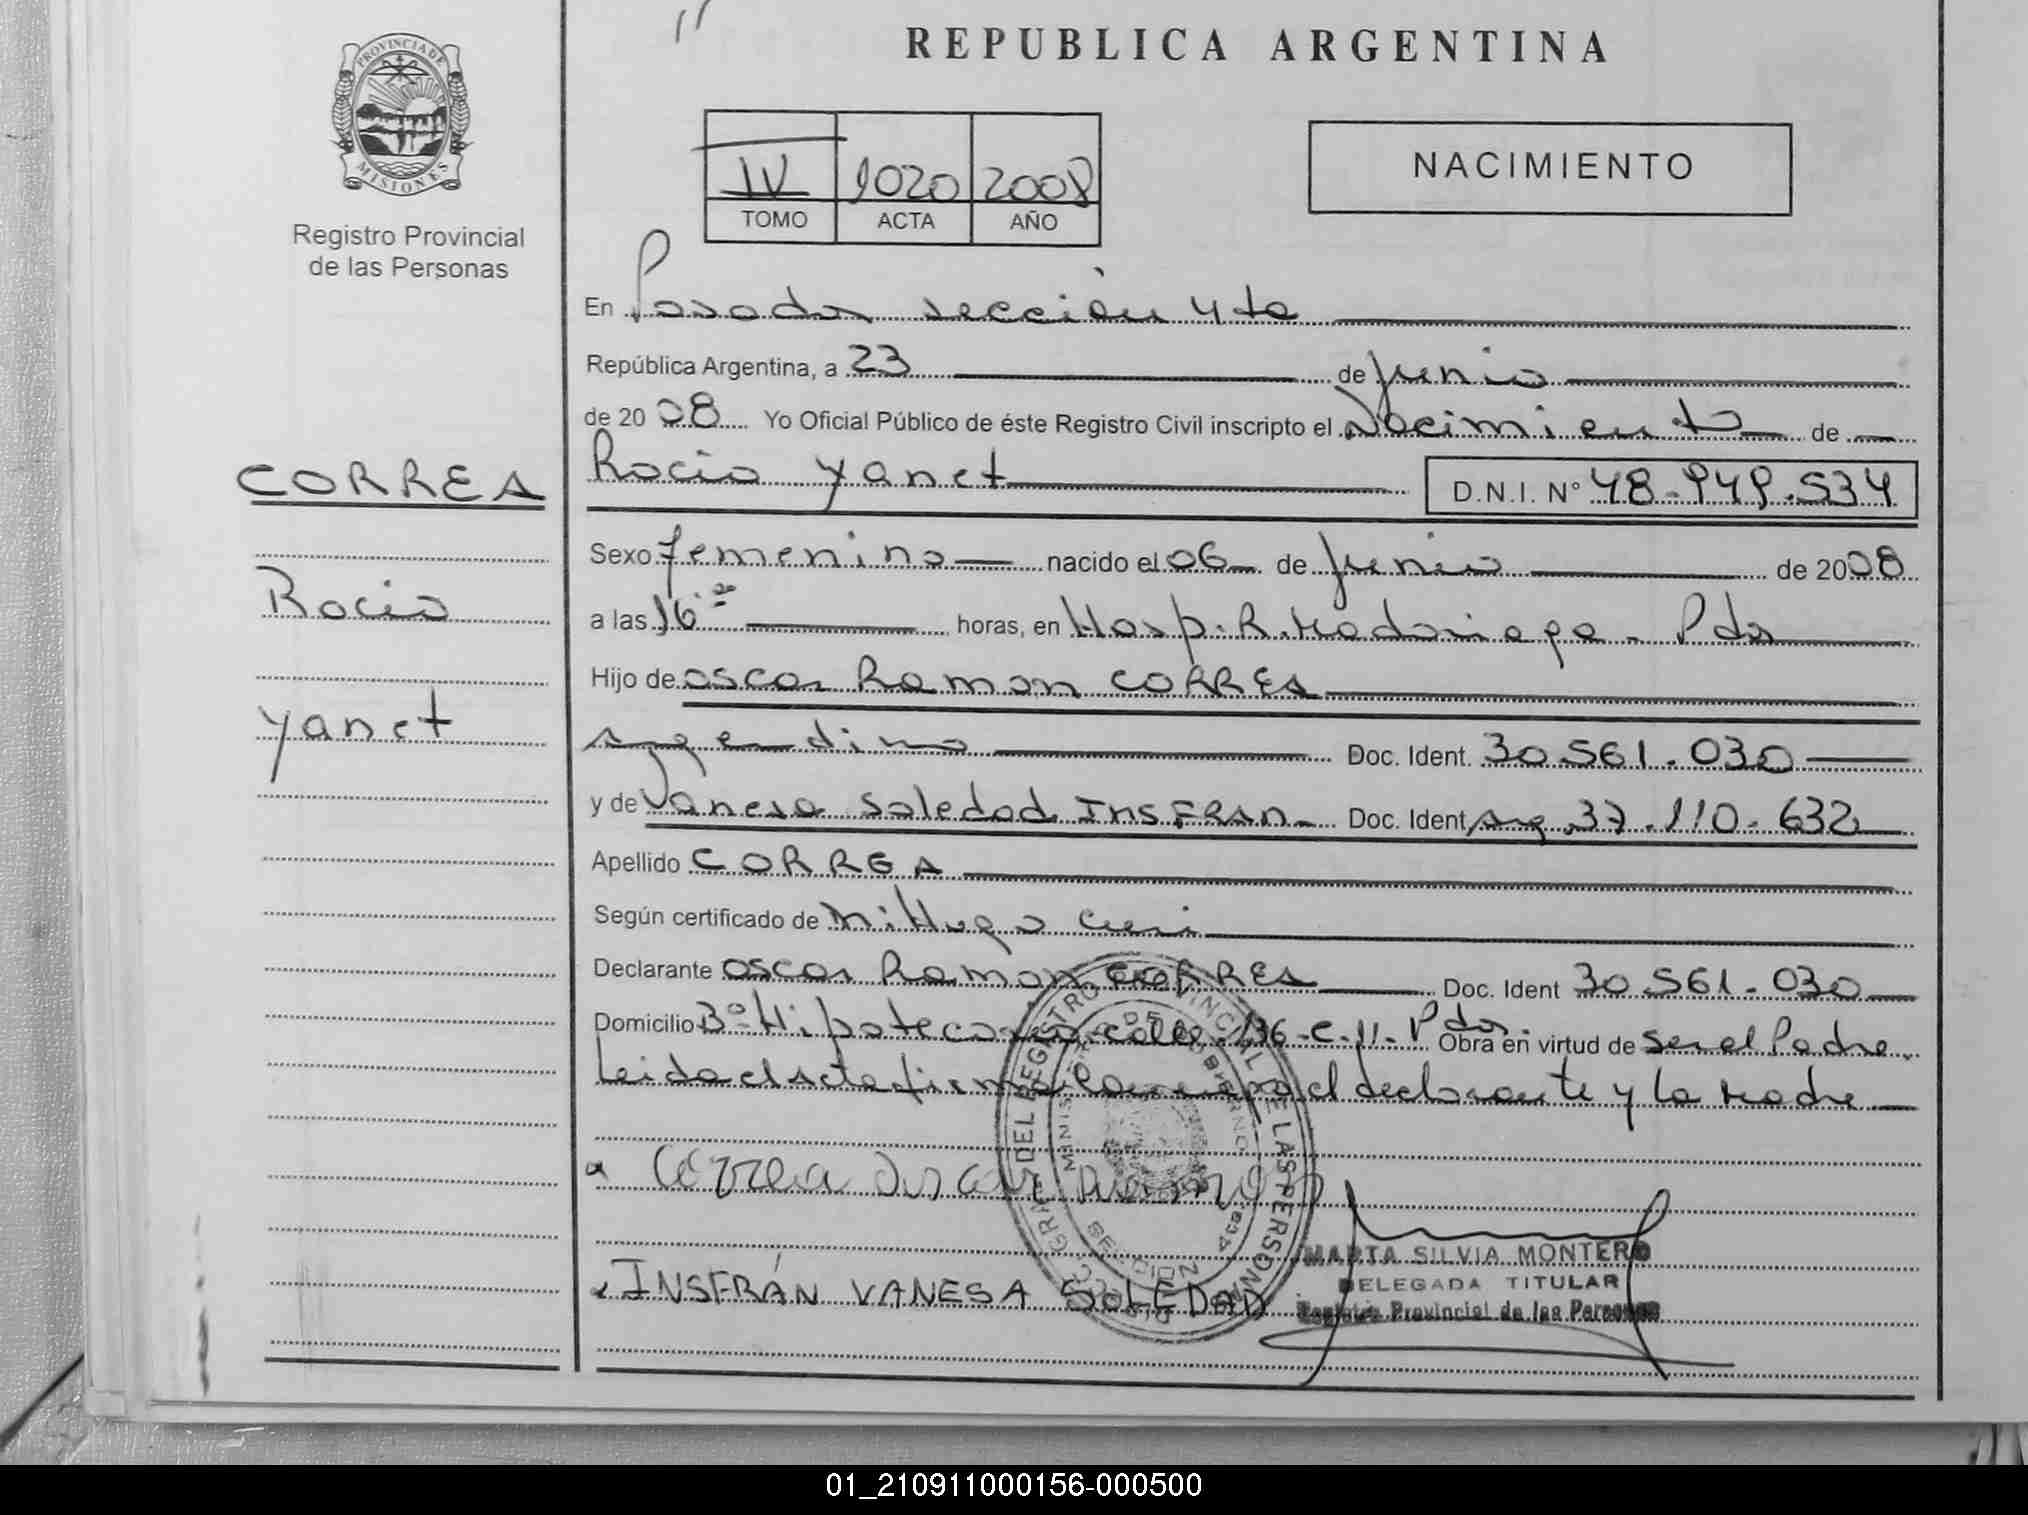 REPUBLICA ARGENTINA
PROVINCIA DE
MISIONES
Registro Provincial
de las Personas
IV 1020 2008
TOMO ACTA AÑO
NACIMIENTO
En Posadas sección 4ta
República Argentina, a 23 de Junio
de 2008 Yo Oficial Público de éste Registro Civil inscripto el Nacimiento de
CORREA
Rocio Yanet D.N.I. N° 48.949.534
Sexo femenino nacido el 06 de Junio de 2008
Rocio
a las 16 horas, en Hosp. R. Madariaga - Pdas
Hijo de Oscar Ramon CORREA
Yanet
argentino Doc. Ident. 30.561.030
y de Vanesa Soledad INSFRAN Doc. Ident arg 37.110.632
Apellido CORREA
Según certificado de Hugo
Declarante Oscar Ramon CORREA Doc. Ident 30.561.030
Domicilio B° Hipotecario calle 136 - C. 11 - Pdas. Obra en virtud de ser el Padre.
Leida el acta firman el declarante y la Madre
Correa Oscar Ramon
INSFRÁN VANESA SOLEDAD
MARTA SILVIA MONTERO
DELEGADA TITULAR
Registro Provincial de las Personas
01_210911000156-000500